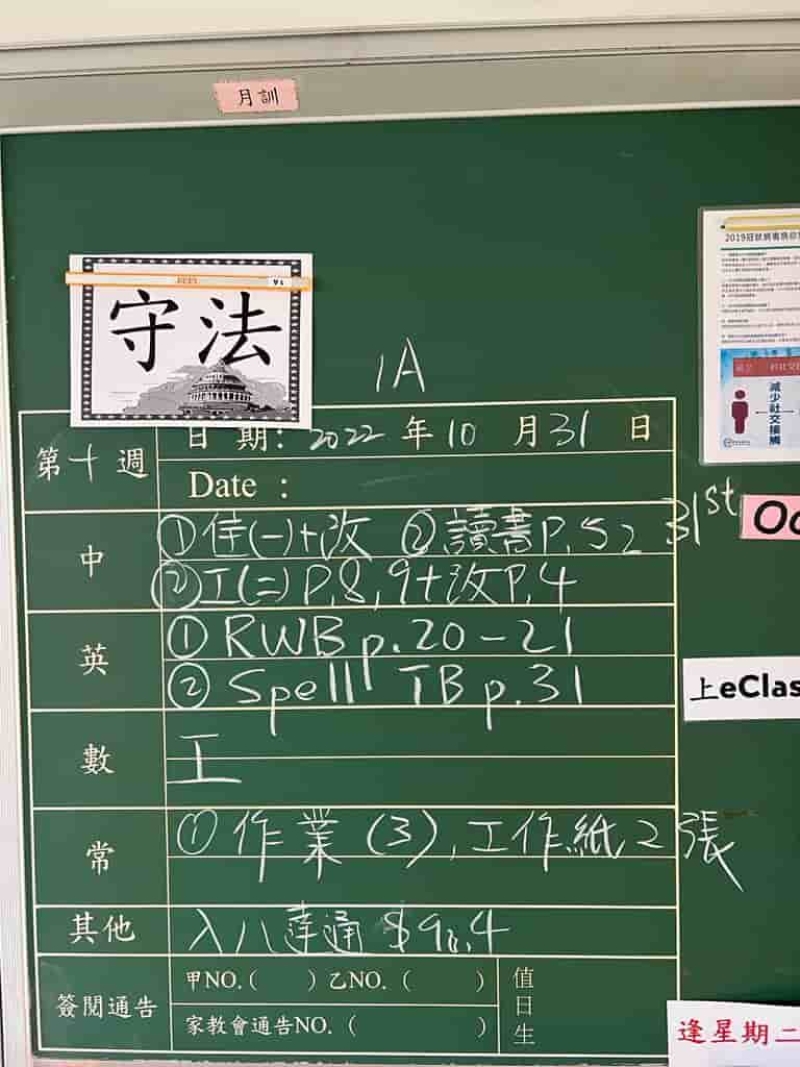 月訓
守法
1A
第十週
日期: 2022 年 10 月 31 日
Date :
中
①住(一)+改 ②讀書P.52
③工(二)P.8,9+改P.4
31st
英
① RWB p.20-21
② Spell TB p.31
上eClas
數
工
常
① 作業 (3), 工作紙 2 張
其他
入八達通
簽閱通告
甲NO.( ) 乙NO.( )
家教會通告NO.( )
值日生
減少社交接觸
逢星期二